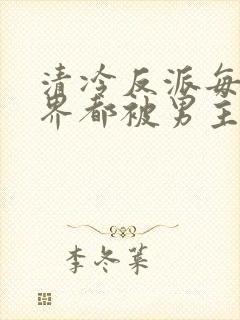 清冷反派每
界都被男主
李冬菓